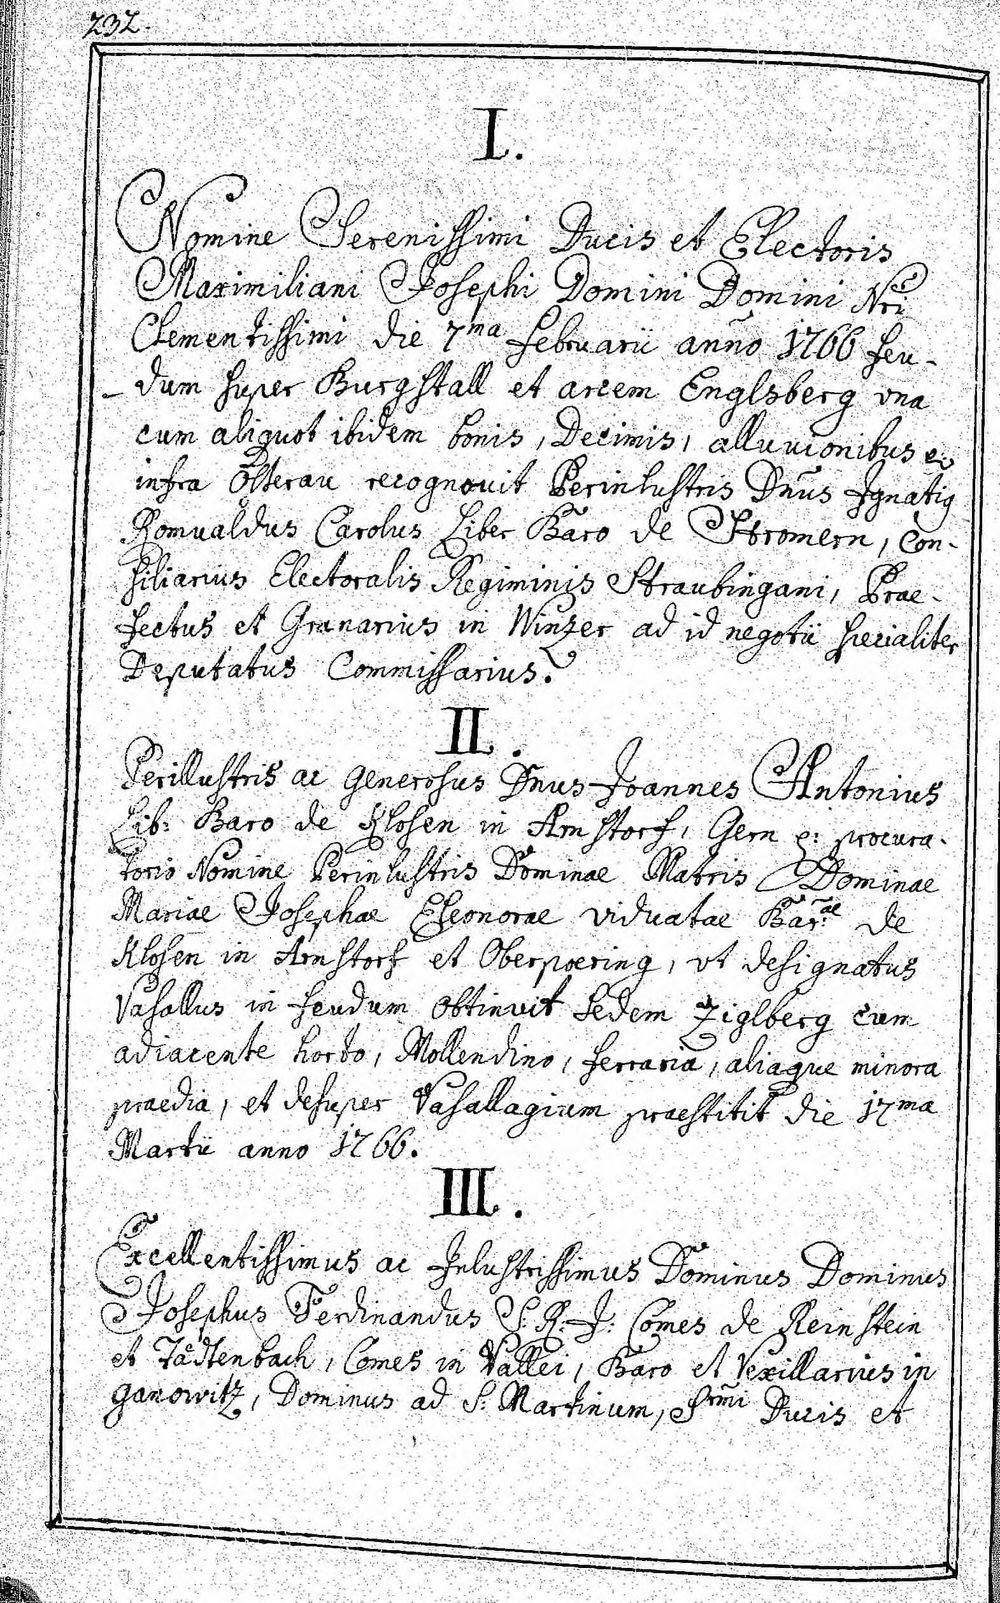 232.
I.
Nomine Serenissimi Ducis et Electoris
Maximiliani Josephi Domini Domini Nri
Clementissimi die 7ma Februarii anno 1766 feu-
dum super Burgstall et arcem Englsberg una
cum aliquot ibidem bonis, Decimis, alluvionibus e:
infra Österau recognovit Perinlustris Dnus Ignatig
Romualdus Carolus Liber Baro de Stromern, Con-
siliarius Electoralis Regiminis Straubingani, Prae-
fectus et Granarius in Winzer ad id negotii specialiter
Deputatus Commissarius.
II.
Perillustris ac Generosus Dnus Joannes Antonius
Lib: Baro de Klosen in Arnstorf, Gern e: procura-
torio Nomine Perinlustris Dominae Matris Dominae
Mariae Josephae Eleonorae viduatae Bar:ae de
Klosen in Arnstorf et Oberpoering, ut designatus
Vasallus in feudum obtinuit Sedem Ziglberg cum
adiacente horto, Mollendino, ferraria, aliaque minora
praedia, et desuper Vasallagium praestitit die 17ma
Martii anno 1766.
III.
Excellentissimus ac Inlustrissimus Dominus Dominus
Josephus Ferdinandus S: R: J: Comes de Reinstein
et Tädtenbach, Comes in Vallei, Baro et Vexillarius in
Ganowitz, Dominus ad S: Martinum, Srmi Ducis et